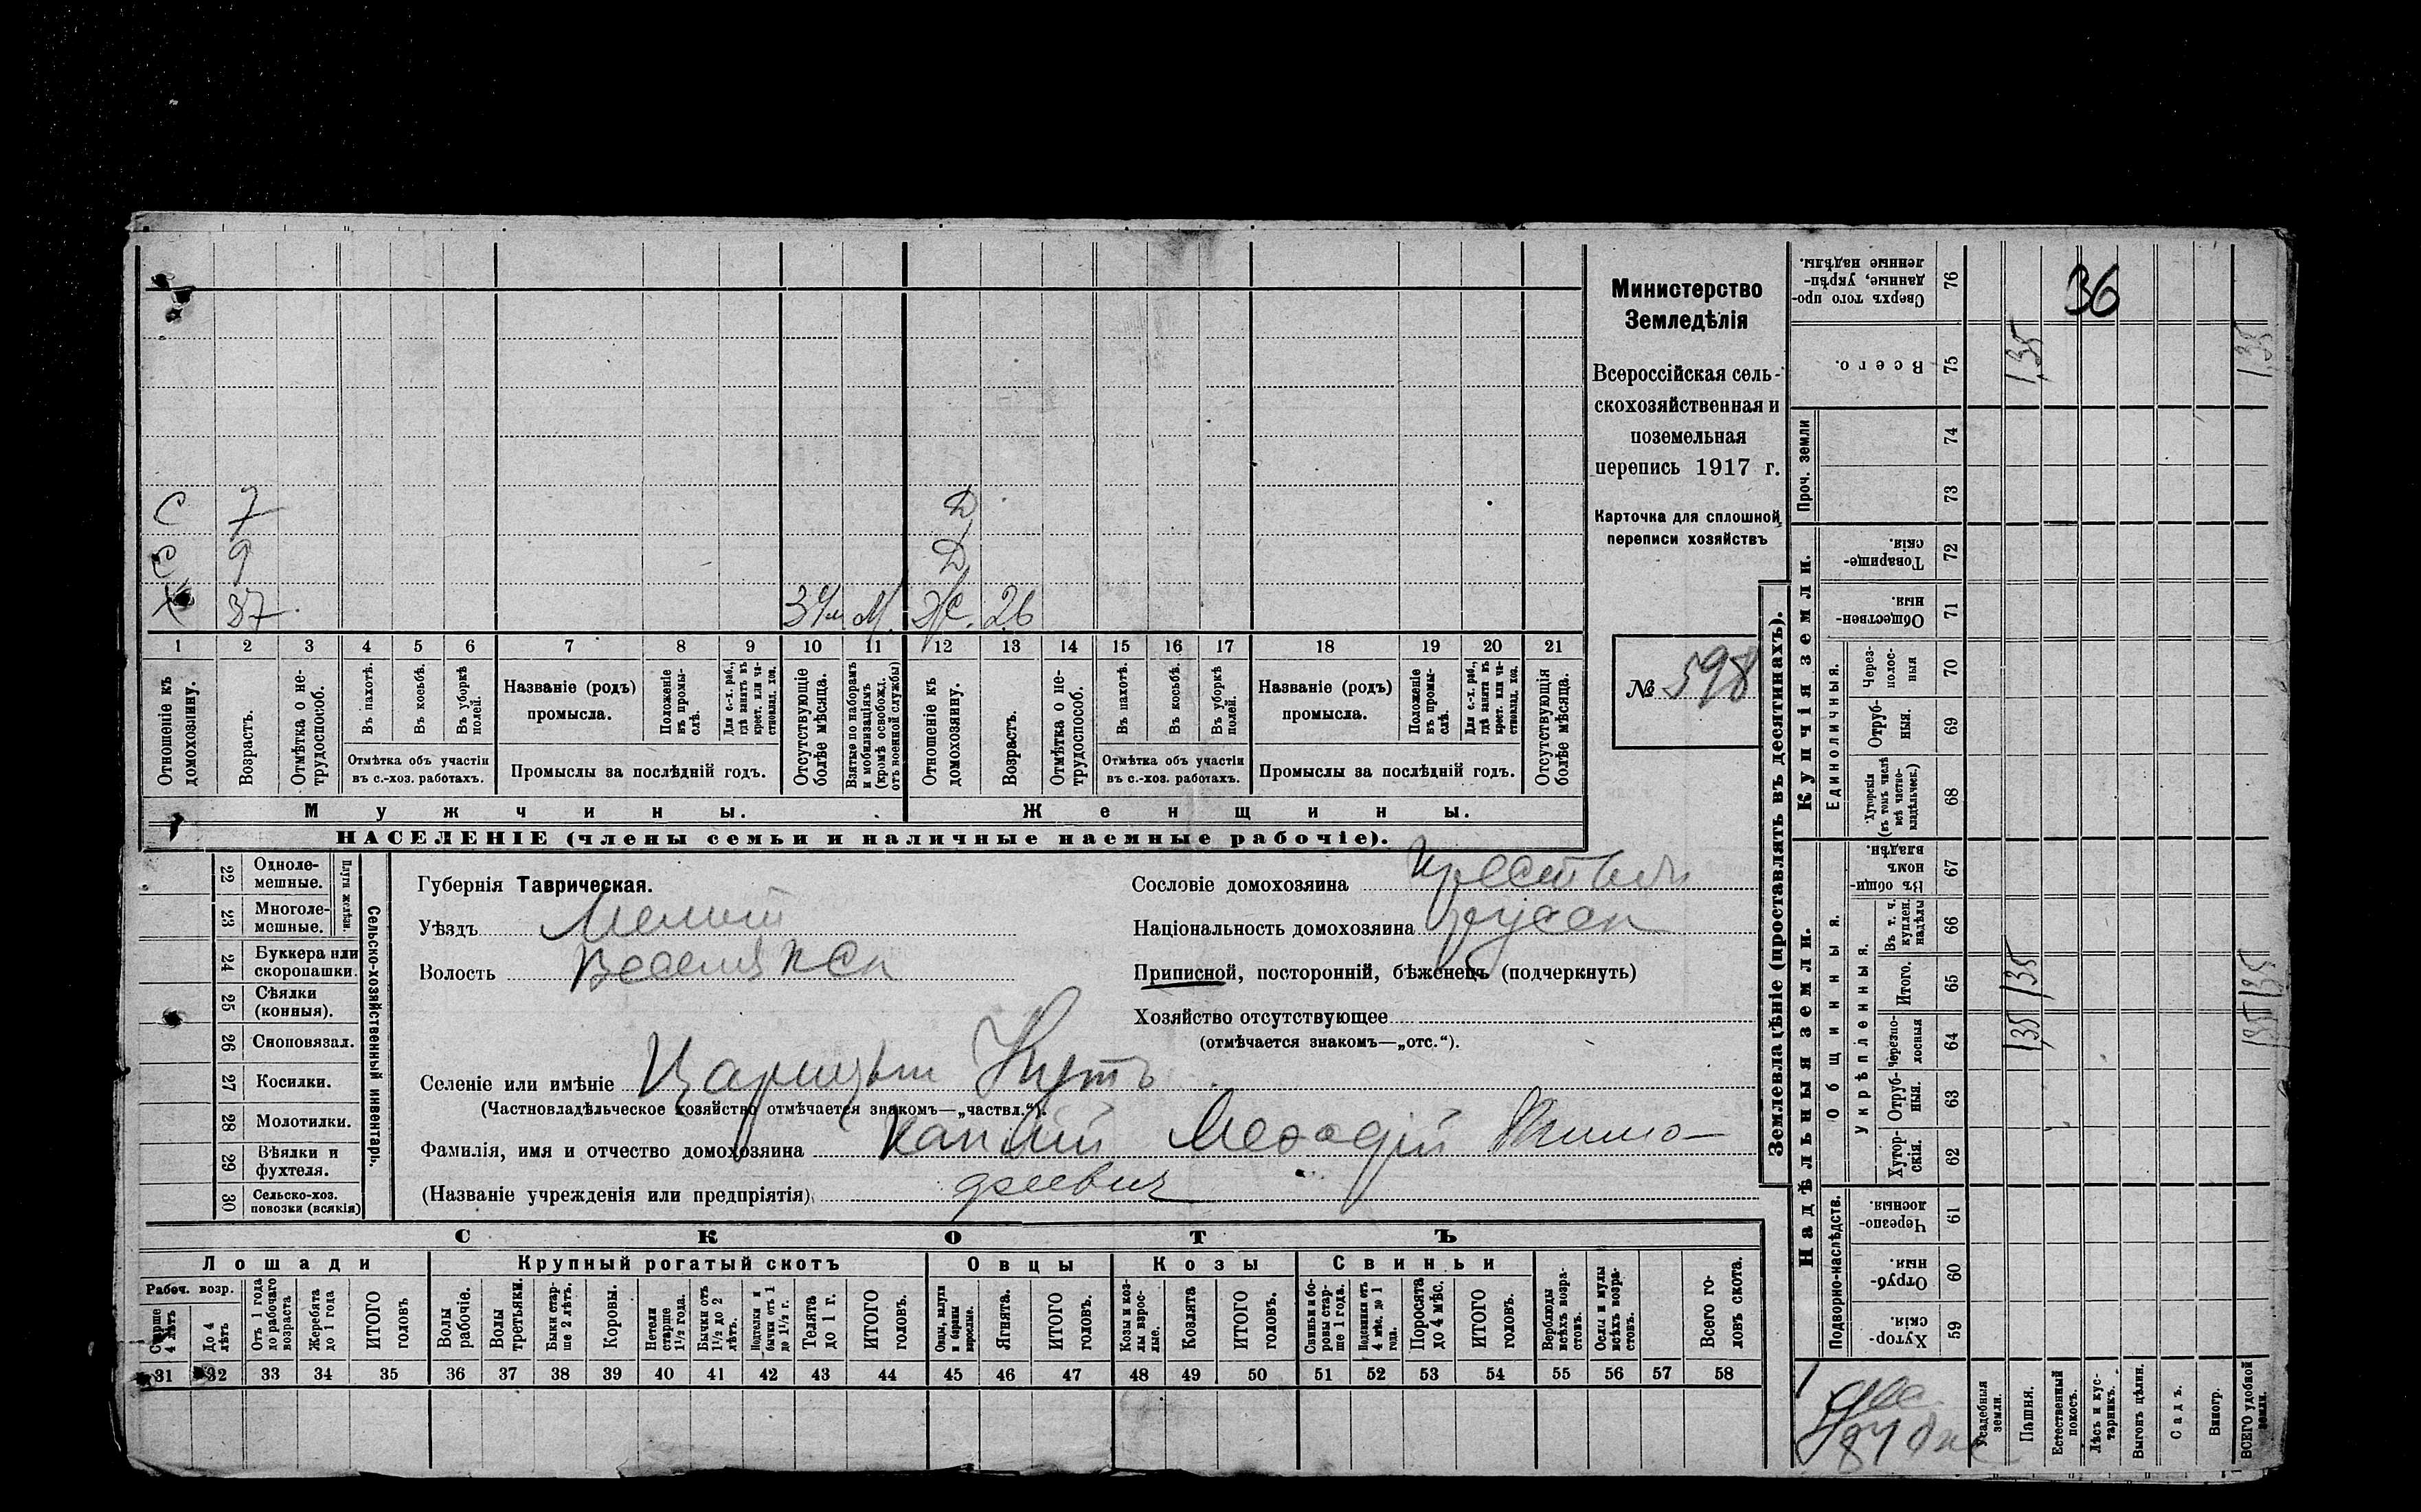 С 7 Д
С 9 Д
Х 37 М Ж. 26
1 2 3 4 5 6 7 8 9 10 11 12 13 14 15 16 17 18 19 20 21
Отношеніе къ домохозяину.
Возрастъ.
Отмѣтка о не-трудоспособ.
Въ пахотѣ.
Въ косьбѣ.
Въ уборкѣ полей.
Отмѣтка объ участіи
въ с.-хоз. работахъ.
Названіе (родъ)
промысла.
Положеніе въ промы-слѣ.
Для с.-х. раб., гдѣ занятъ въ крест. или ча-стновлад. хоз.
Промыслы за послѣдній годъ.
Отсутствующіе болѣе мѣсяца.
Взятые по наборамъ и мобилизаціямъ (кромѣ освобожд. отъ военной службы)
Отношеніе къ домохозяину.
Возрастъ.
Отмѣтка о не-трудоспособ.
Въ пахотѣ.
Въ косьбѣ.
Въ уборкѣ полей.
Отмѣтка объ участіи
въ с.-хоз. работахъ.
Названіе (родъ)
промысла.
Положеніе въ промы-слѣ.
Для с.-х. раб., гдѣ занята въ крест. или ча-стновлад. хоз.
Промыслы за послѣдній годъ.
Отсутствующія болѣе мѣсяца.
Мужчины.
Женщины.
НАСЕЛЕНІЕ (члены семьи и наличные наемные рабочіе).
Министерство
Земледѣлія
Всероссійская сель-
скохозяйственная и
поземельная
перепись 1917 г.
Карточка для сплошной
переписи хозяйствъ
№ 598
Сельско-хозяйственный инвентарь.
Плуги желѣзн.
22 Одноле-
мешные.
23 Многоле-
мешные.
24 Буккера или
скоропашки.
25 Сѣялки
(конныя).
26 Сноповязал.
27 Косилки.
28 Молотилки.
29 Вѣялки и
фухтеля.
30 Сельско-хоз.
повозки (всякія)
Губернія Таврическая.
Уѣздъ Мелит
Волость
Сословіе домохозяина
Національность домохозяина русск
Приписной, посторонній, бѣженецъ (подчеркнуть)
Хозяйство отсутствующее
(отмѣчается знакомъ—„отс.“).
Селеніе или имѣніе Царицын Кутъ
(Частновладѣльческое хозяйство отмѣчается знакомъ—„частвл.“).
Фамилія, имя и отчество домохозяина Мефодій Тимо-
(Названіе учрежденія или предпріятія) феевич
СКОТЪ
Лошади
Крупный рогатый скотъ
Овцы
Козы
Свиньи
Рабоч. возр.
Старше 4 лѣтъ
До 4 лѣтъ
Отъ 1 года до рабочаго возраста
Жеребята до 1 года
ИТОГО головъ
Волы рабочіе.
Волы третьяки.
Быки стар-ше 2 лѣтъ.
Коровы.
Нетели старше 1½ года.
Бычки отъ 1½ до 2 лѣтъ.
Подтелки и бычки отъ 1 до 1½ г.
Телята до 1 г.
ИТОГО головъ.
Овцы, валухи и бараны взрослые.
Ягнята.
ИТОГО головъ.
Козы и коз-лы взрос-лые.
Козлята
ИТОГО головъ.
Свиньи и бо-ровы стар-ше 1 года.
Подсвинки отъ 4 мѣс. до 1 года.
Поросята до 4 мѣс.
ИТОГО головъ.
Верблюды всѣхъ возра-стовъ.
Ослы и мулы всѣхъ возра-стовъ.
Всего го-ловъ скота.
31 32 33 34 35 36 37 38 39 40 41 42 43 44 45 46 47 48 49 50 51 52 53 54 55 56 57 58
Землевладѣніе (проставлять въ десятинахъ).
Сверхъ того про-данные, укрѣп-ленные надѣлы. 76
36
Всего. 75 1,35 1,35
Проч. земли
74
73
Купчія земли.
Товарище-скія. 72
Обществен-ныя. 71
Единоличныя.
Через-полос-ныя 70
Отруб-ныя. 69
Хуторскія (въ томъ числѣ всѣ частно-владѣльческ.) 68
Надѣльныя земли.
Общинныя.
Въ общин-номъ владѣн. 67
Укрѣпленныя.
Въ т. ч. куплен. надѣлы 66
Итого. 65 1,35 1,35
Черезпо-лосныя 64 1,35 1,35
Отруб-ныя. 63
Хутор-скія. 62
Подворно-наслѣдств.
Черезпо-лосныя. 61
Отруб-ныя. 60
Хутор-скія. 59
Усадебныя земли.
Пашня.
Естественный покосъ.
Лѣсъ и кус-тарникъ.
Выгонъ цѣлин.
Садъ.
Виногр.
ВСЕГО удобной земли.